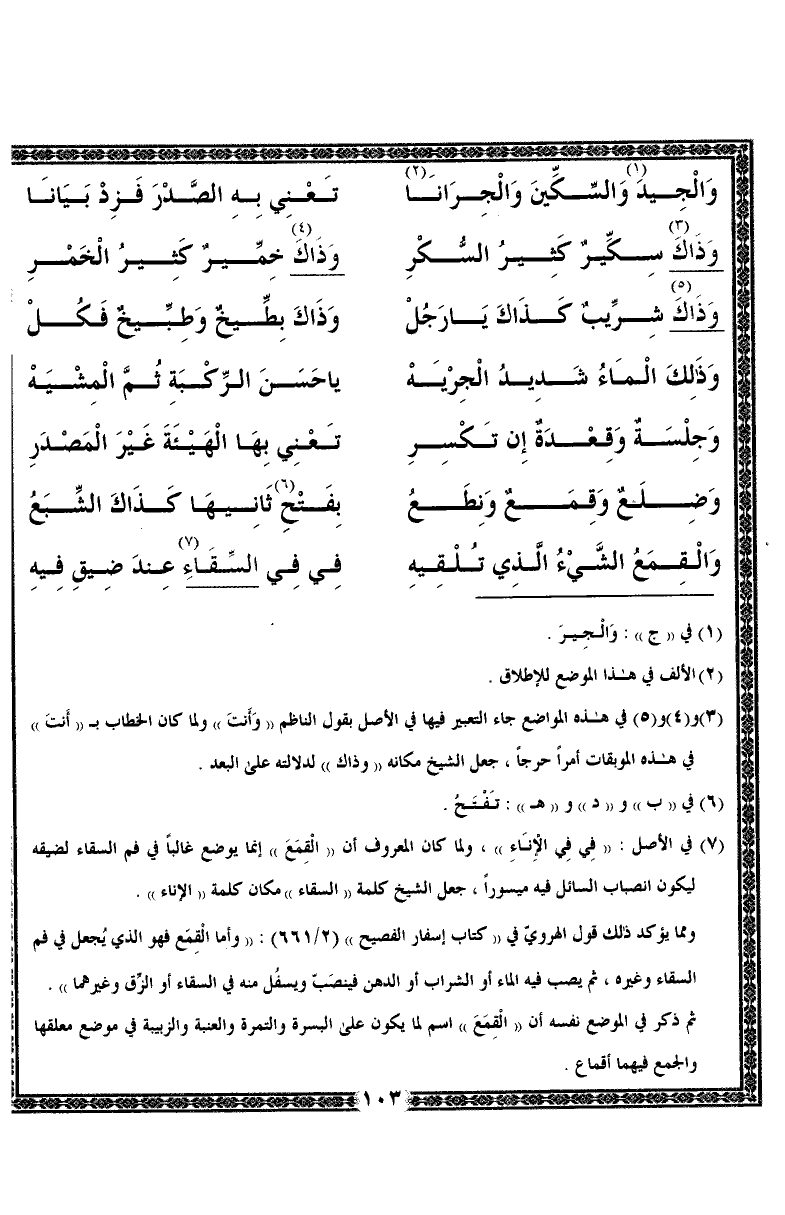 وَالْجِيدَ(١) وَالسِّكِّينَ وَالْجِرَانَا(٢) تَعْنِي بِهِ الصَّدْرَ فَزِدْ بَيَانَا
وَذَاكَ(٣) سِكِّيرٌ كَثِيرُ السُّكْرِ وَذَاكَ(٤) خِمِّيرٌ كَثِيرُ الْخَمْرِ
وَذَاكَ(٥) شِرِّيبٌ كَذَاكَ يَارَجُلْ وَذَاكَ بِطِّيخٌ وَطِبِّيخٌ فَكُلْ
وَذَلِكَ الْمَاءُ شَدِيدُ الْجِرْيَهْ ياحَسَنَ الرِّكْبَةِ ثُمَّ الْمِشْيَهْ
وَجِلْسَةٌ وَقِعْدَةٌ إِن تَكْسِرِ تَعْنِي بِهَا الْهَيْئَةَ غَيْرَ الْمَصْدَرِ
وَضِلَعٌ وَقِمَعٌ وَنِطَعُ بِفَتْحِ(٦) ثَانِيهَا كَذَاكَ الشِّبَعُ
وَالْقِمَعُ الشَّيْءُ الَّذِي تُلْقِيهِ فِي فِي السِّقَاءِ(٧) عِندَ ضِيقِ فِيهِ
(١) في « ج » : وَالْجِيرَ .
(٢) الألف في هذا الموضع للإطلاق .
(٣)و(٤)و(٥) في هذه المواضع جاء التعبير فيها في الأصل بقول الناظم « وَأَنتَ » ولما كان الخطاب بـ « أَنتَ »
في هذه الموبقات أمراً حرجاً ، جعل الشيخ مكانه « وذاك » لدلالته على البعد .
(٦) في « ب » و « د » و « هـ » : تَفْتَحُ .
(٧) في الأصل : « فِي فِي الْإِنَاءِ » ، ولما كان المعروف أن « الْقِمَعَ » إنما يوضع غالباً في فم السقاء لضيقه
ليكون انصباب السائل فيه ميسوراً ، جعل الشيخ كلمة « السقاء » مكان كلمة « الإناء » .
ومما يؤكد ذلك قول الهرويّ في « كتاب إسفار الفصيح » (٦٦١/٢) : « وأما الْقِمَع فهو الذي يُجعل في فم
السقاء وغيره ، ثم يصب فيه الماء أو الشراب أو الدهن فينصَبّ ويسفُل منه في السقاء أو الزِّق وغيرهما » .
ثم ذكر في الموضع نفسه أن « الْقِمَعَ » اسم لما يكون على البسرة والتمرة والعنبة والزبيبة في موضع معلقها
والجمع فيهما أقماع .
١٠٣